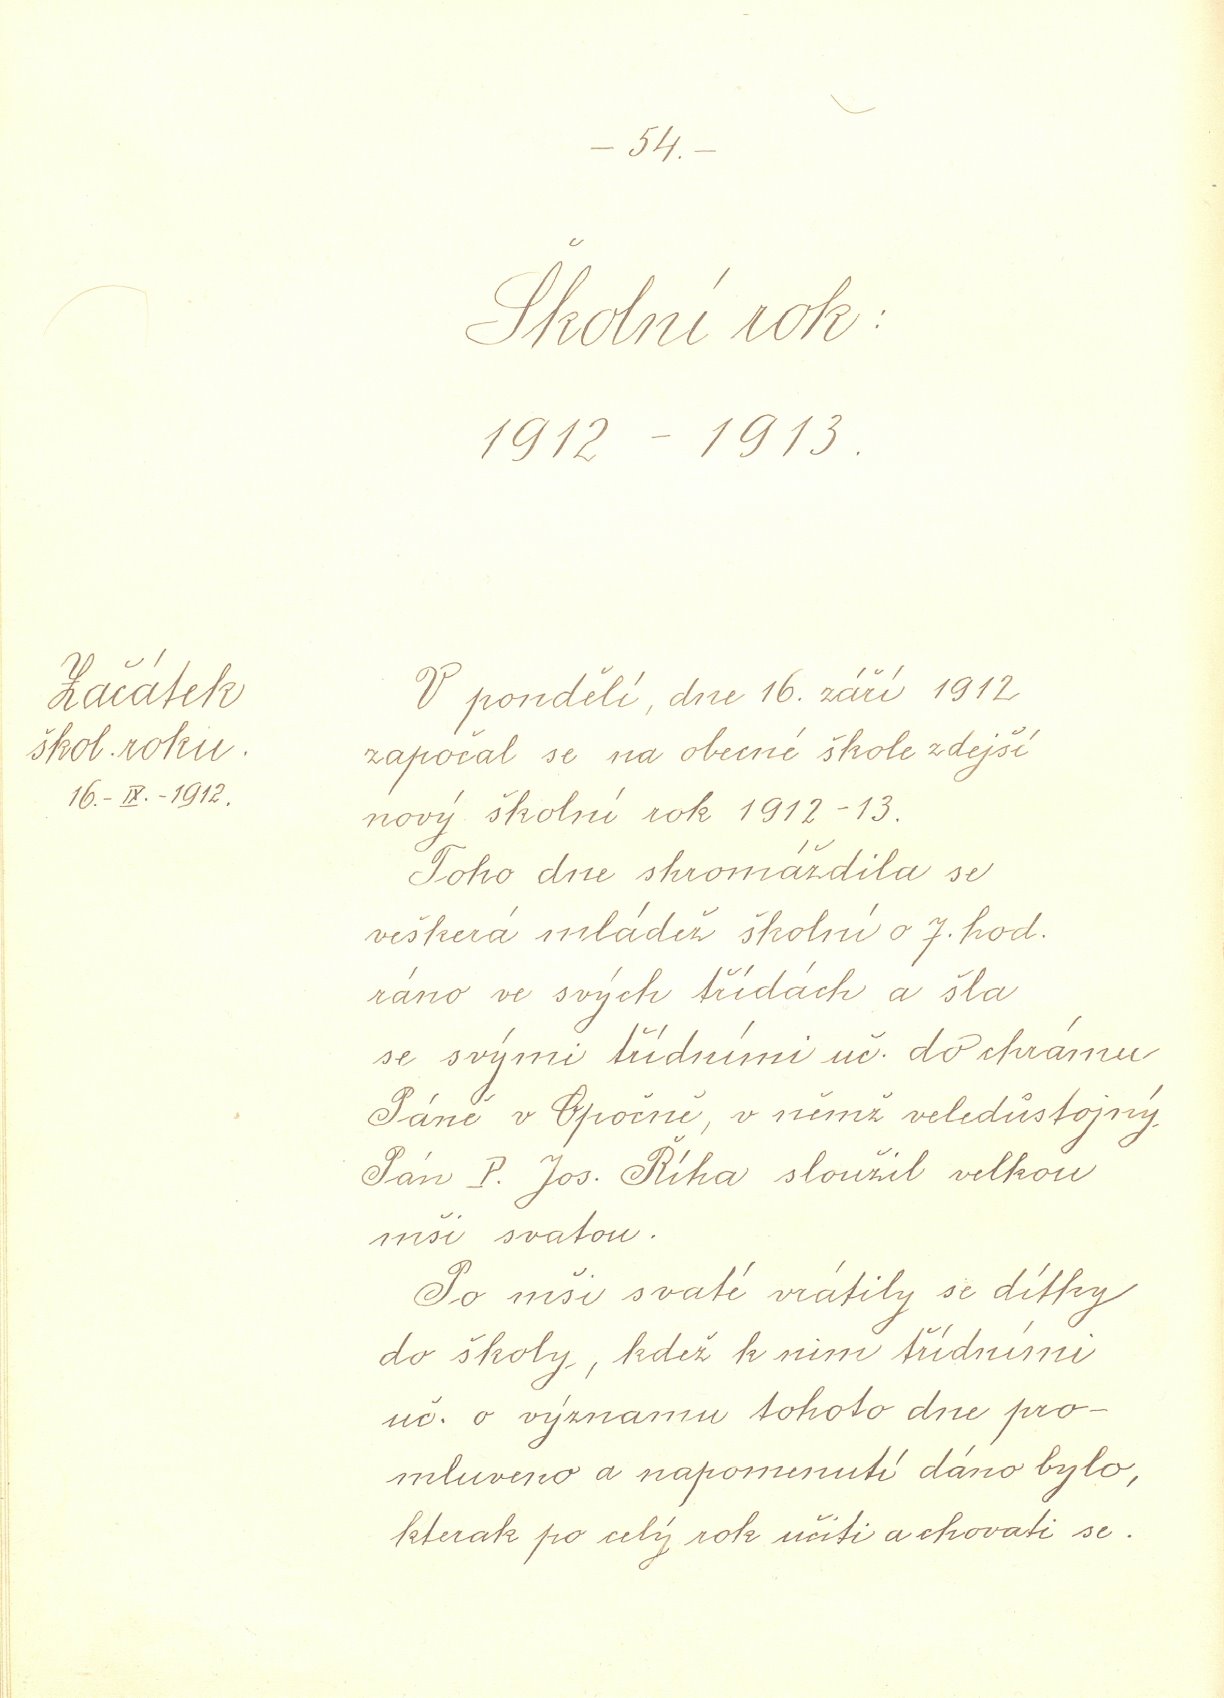 – 54. –
Školní rok:
1912 – 1913.
Začátek
škol. roku.
16. – IX. – 1912.
V pondělí, dne 16. září 1912
započal se na obecné škole zdejší
nový školní rok 1912 – 13.
Toho dne shromáždila se
veškerá mládež školní o 7. hod.
ráno ve svých třídách a šla
se svými třídními uč. do chrámu
Páně v Opočně, v němž veledůstojný
Pán P. Jos. Říha sloužil velkou
mši svatou.
Po mši svaté vrátily se dítky
do školy, kdež k nim třídními
uč. o významu tohoto dne pro-
mluveno a napomenutí dáno bylo,
kterak po celý rok učiti a chovati se.